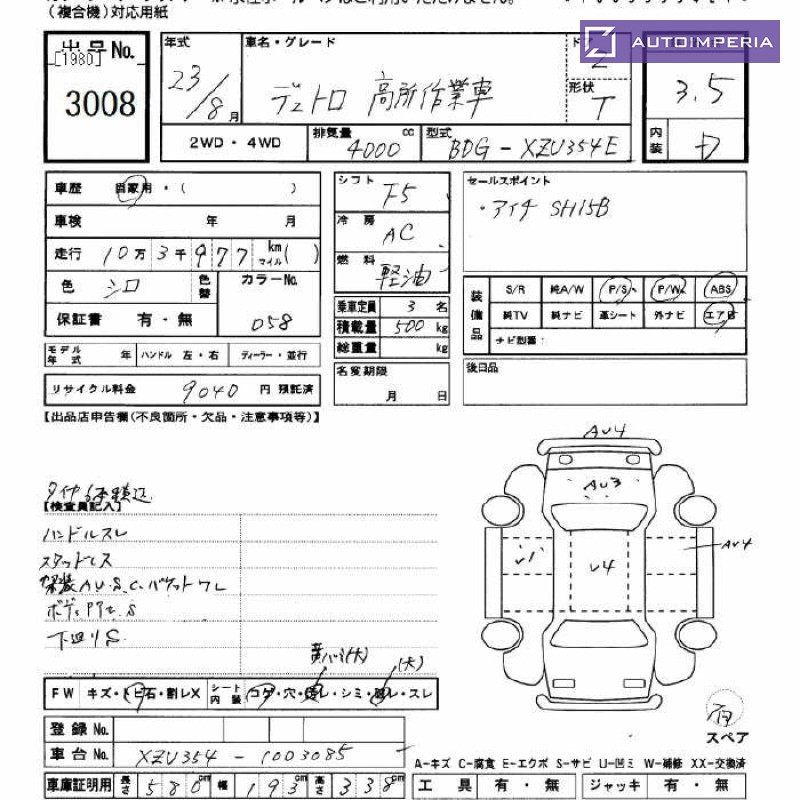 (複合機)対応用紙
AUTOIMPERIA
出品No. 年式 車名・グレード ドア 2
[1980] 3008 23/8月 デュトロ 高所作業車 形状 T 3.5
2WD・4WD 排気量 4000 cc 型式 BDG-XZU354E 内装 D
車歴 自家用・( ) シフト F5 セールスポイント
車検 年 月 冷房 AC ・アイチ SH15B
走行 10万3千977 km マイル( ) 燃料 軽油
色 シロ 色替 カラーNo. 058
装備品 S/R 純A/W P/S P/W ABS
保証書 有・無 乗車定員 3名 純TV 純ナビ 革シート 外ナビ エアB
積載量 500 kg ナビ型番:
モデル年式 年 ハンドル 左・右 ディーラー・並行 総重量 kg
後日品
リサイクル料金 9040 円 預託済 名変期限 月 日
【出品店申告欄(不良箇所・欠品・注意事項等)】
タイヤ6本積込
【検査員記入】
ハンドルスレ
スタッドレス
架装AU.S.C.バケットワレ
ボディ
下廻りS
AU4
AU3
U1 U4 AU4
(大)
FW キズ・トビ石・割レX シート内装 コゲ・穴・・シミ・・スレ
登録No.
車台No. XZU354-1003085
スペア
A-キズ C-腐食 E-エクボ S-サビ U-凹ミ W-補修 XX-交換済
車庫証明用 長さ 580cm 幅 193cm 高さ 338cm 工具 有・無 ジャッキ 有・無